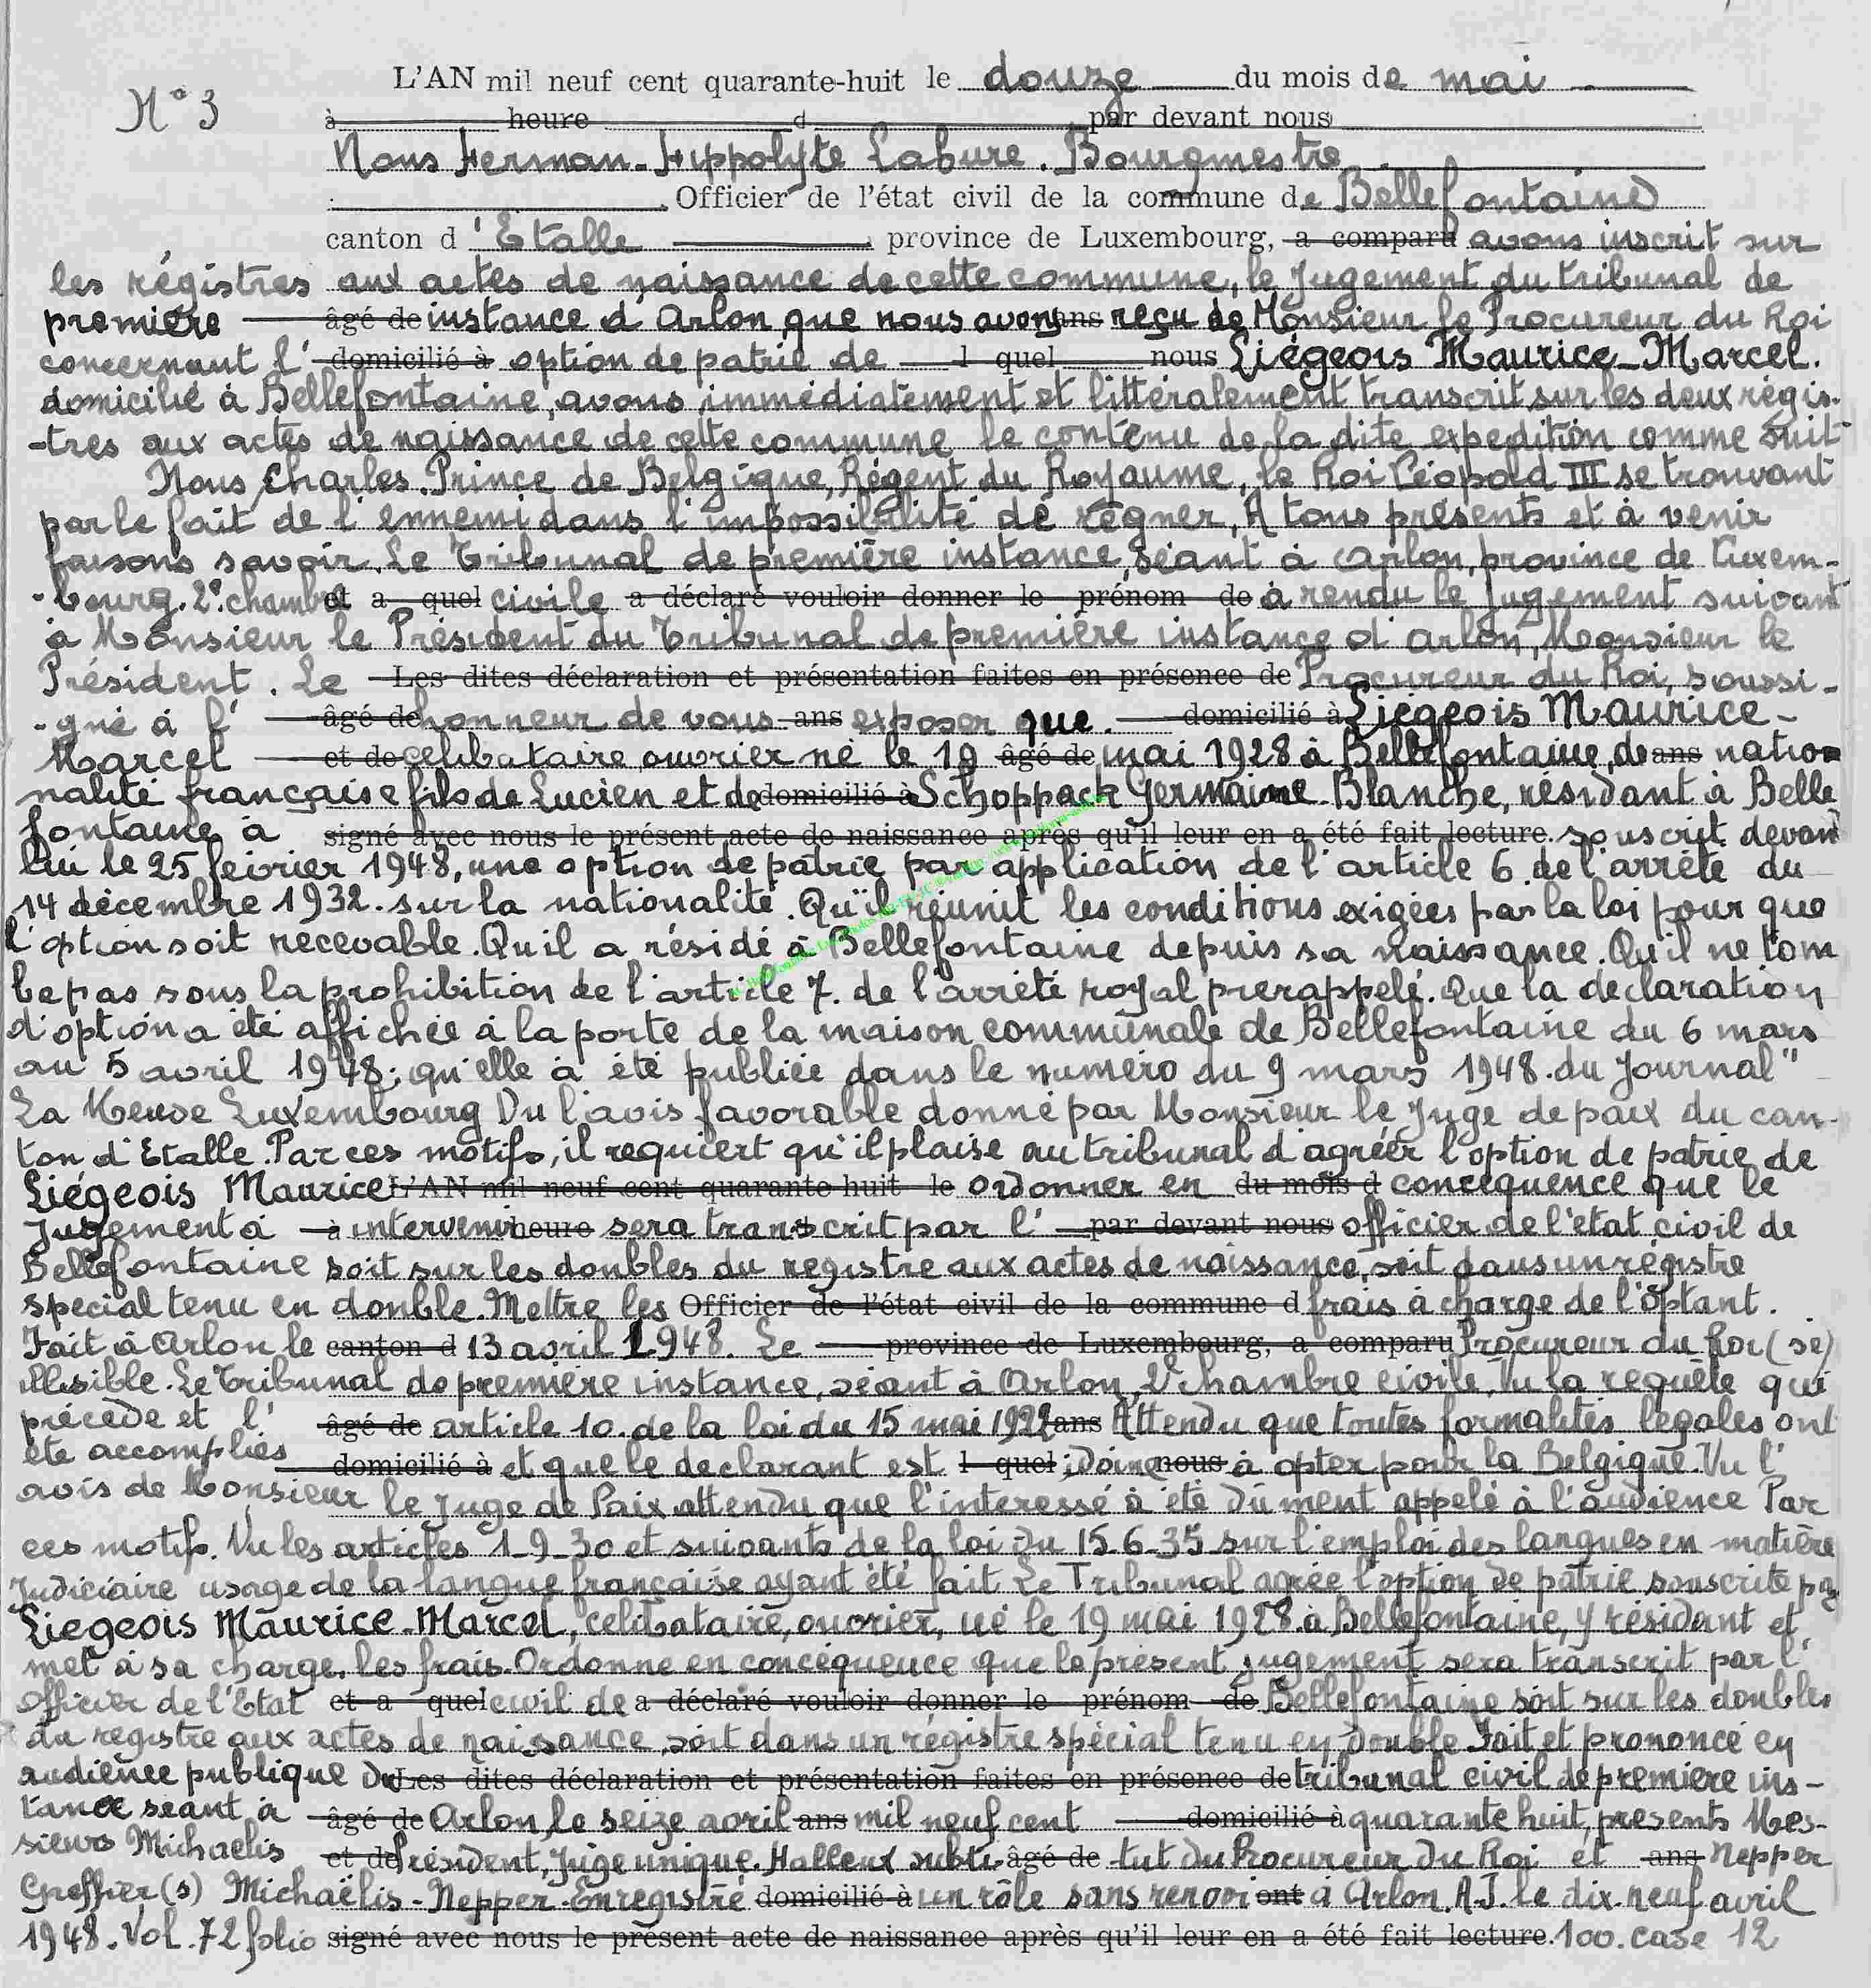 N° 3
L'AN mil neuf cent quarante-huit le douze du mois de mai
à heure d par devant nous
Nous Herman-Hippolyte Labure. Bourgmestre
Officier de l'état civil de la commune de Bellefontaine
canton d'Etalle province de Luxembourg, a comparu avons inscrit sur
les régistres aux actes de naissance de cette commune, le Jugement du tribunal de
première âgé de instance d'Arlon que nous avons ans reçu de Monsieur le Procureur du Roi
concernant l' domicilié à option de patrie de l quel nous Liégeois Maurice-Marcel.
domicilié à Bellefontaine, avons immédiatement et littéralement transcrit sur les deux régis-
-tres aux actes de naissance de cette commune le contenu de la dite expedition comme suit
Nous Charles. Prince de Belgique, Régent du Royaume, le Roi Léopold III se trouvant
par le fait de l'ennemi dans l'impossibilité de régner, A tous présents et à venir
faisons savoir. Le Tribunal de première instance, séant à Arlon, province de Luxem-
-bourg. 2e. chambre et a quel civile a déclaré vouloir donner le prénom de à rendu le jugement suivant
à Monsieur le Président du Tribunal de première instance d'Arlon, Monsieur le
Président. Le Les dites déclaration et présentation faites en présence de Procureur du Roi, soussi-
-gné à l' âgé de honneur de vous ans exposer que. domicilié à Liégeois Maurice-
Marcel et de celibataire ouvrier né le 19 âgé de mai 1928 à Bellefontaine, de ans natio-
nalité française fils de Lucien et de domicilié à Schoppach Germaine-Blanche, résidant à Belle
fontaine à signé avec nous le présent acte de naissance après qu'il leur en a été fait lecture. souscrit devant
lui le 25 feivrier 1948, une option de patrie par application de l'article 6. de l'arrêté du
14 décembre 1932. sur la nationalité. Qu'il réunit les conditions exigées par la loi pour que
l'option soit recevable. Qu'il a résidé à Bellefontaine depuis sa naissance. Qu'il ne tom
be pas sous la prohibition de l'article 7. de l'arrêté royal prerappelé. Que la declaration
d'option a été affichée à la porte de la maison communale de Bellefontaine du 6 mars
au 5 avril 1948; qu'elle à été publiée dans le numéro du 9 mars 1948. du Journal "
La Meuse Luxembourg Vu l'avis favorable donné par Monsieur le Juge de paix du can-
ton d'Etalle. Par ces motifs, il requiert qu'il plaise au tribunal d'agréer l'option de patrie de
Liégeois Maurice L'AN mil neuf cent quarante-huit le ordonner en du mois d concequence que le
Jugement à à intervenir heure sera transcrit par l' par devant nous officier de l'état civil de
Bellefontaine soit sur les doubles du registre aux actes de naissance, soit dans un régistre
special tenu en double. Mettre les Officier de l'état civil de la commune d frais à charge de l'optant.
Fait à Arlon le canton d 13 avril 1948. Le province de Luxembourg, a comparu Procureur du Roi (se)
illisible. Le Tribunal de première instance, séant à Arlon, 2e chambre civile. Vu la requête qui
précède et l' âgé de article 10. de la loi du 15 mai 1922 ans Attendu que toutes formalités légales ont
été accomplies domicilié à et que le declarant est l quel idoine nous à opter pour la Belgique. Vu l'
avis de Monsieur le Juge de Paix attendu que l'interessé à été dûment appelé à l'audience Par
ces motifs. Vu les articles 1-9-30 et suivants de la loi du 15-6-35 sur l'emploi des langues en matière
Judiciaire usage de la langue française ayant été fait Le Tribunal agrée l'option de patrie souscrite par
Liégeois Maurice-Marcel, celibataire, ouvrier, né le 19 mai 1928 à Bellefontaine, y résidant et
met à sa charge, les frais. Ordonne en concéquence que le présent jugement sera transcrit par l'
Officier de l'Etat et a quel civil de a déclaré vouloir donner le prénom de Bellefontaine soit sur les doubles
du registre aux actes de naissance, soit dans un régistre spécial tenu en double Fait et prononcé en
audience publique du Les dites déclaration et présentation faites en présence de tribunal civil de premiere ins-
tance séant à âgé de Arlon, le seize avril ans mil neuf cent domicilié à quarante huit, presents Mes-
sieurs Michaelis et de Président, Juge unique. Halleux subti- âgé de tut du Procureur du Roi et ans Nepper
Greffier (s) Michaëlis-Nepper-Enregistré domicilié à un rôle sans renvoi ont à Arlon. A.J. le dix-neuf avril
1948. Vol. 72 folio signé avec nous le présent acte de naissance après qu'il leur en a été fait lecture. 100. case 12